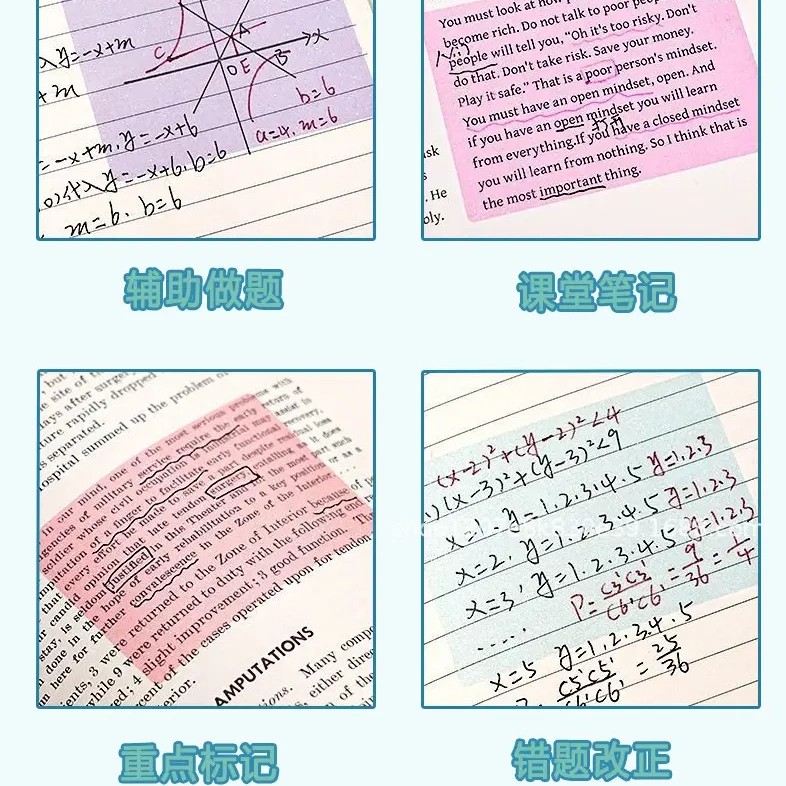 入y=-x+m
+m
=-x+m, y=-x+6
代入y=-x+6, b=6
m=6. b=6
C
A
B
O E
x
b=6
a=4, m=6
You must look at how
become rich. Do not talk to poor
people will tell you, "Oh it's too risky. Don't
do that. Don't take risk. Save your money.
Play it safe." That is a poor person's mindset.
You must have an open mindset, open. And
if you have an open mindset you will learn
from everything.If you have a closed mindset
you will learn from nothing. So I think that is
the most important thing.
. He
辅助做题
课堂笔记
days after surgery
ture rapidly dropped
s separated.
ospital summed up the problem of
in our mind, one of the most serious problems with
agencies of military service require the early return of
soldier whose civil occupation is industrial may
amputation of a finger to facilitate early functional recovery.
that every effort be made to save a part despite residual loss
or candid opinion that late tendon surgery
stay, is seldom justified in this Theater and
done in the hope of early rehabilitation to a key position or as a
m here for further convalescence in the Zone of the Interior
returned to the Zone of Interior because of
while 9 were returned to duty with the following end
ed; 4 slight improvement; 3 good function. The
cent of the cases operated upon for tendon
erior.
AMPUTATIONS
tions. Many
s, either
(x-2)²+(y-2)²<4
(x-3)²+(y-3)²<9
x=1, y=1.2.3.4.5 y=1.2.3
x=2, y=1.2.3.4.5 y=1.2.3
x=3, y=1.2.3.4.5 y=1.2.3
P=C3'C3'/C6'C6'=9/36=1/4
.....
x=5 y=1.2.3.4.5
C5'C5'/C6'C6'=25/36
重点标记
错题改正